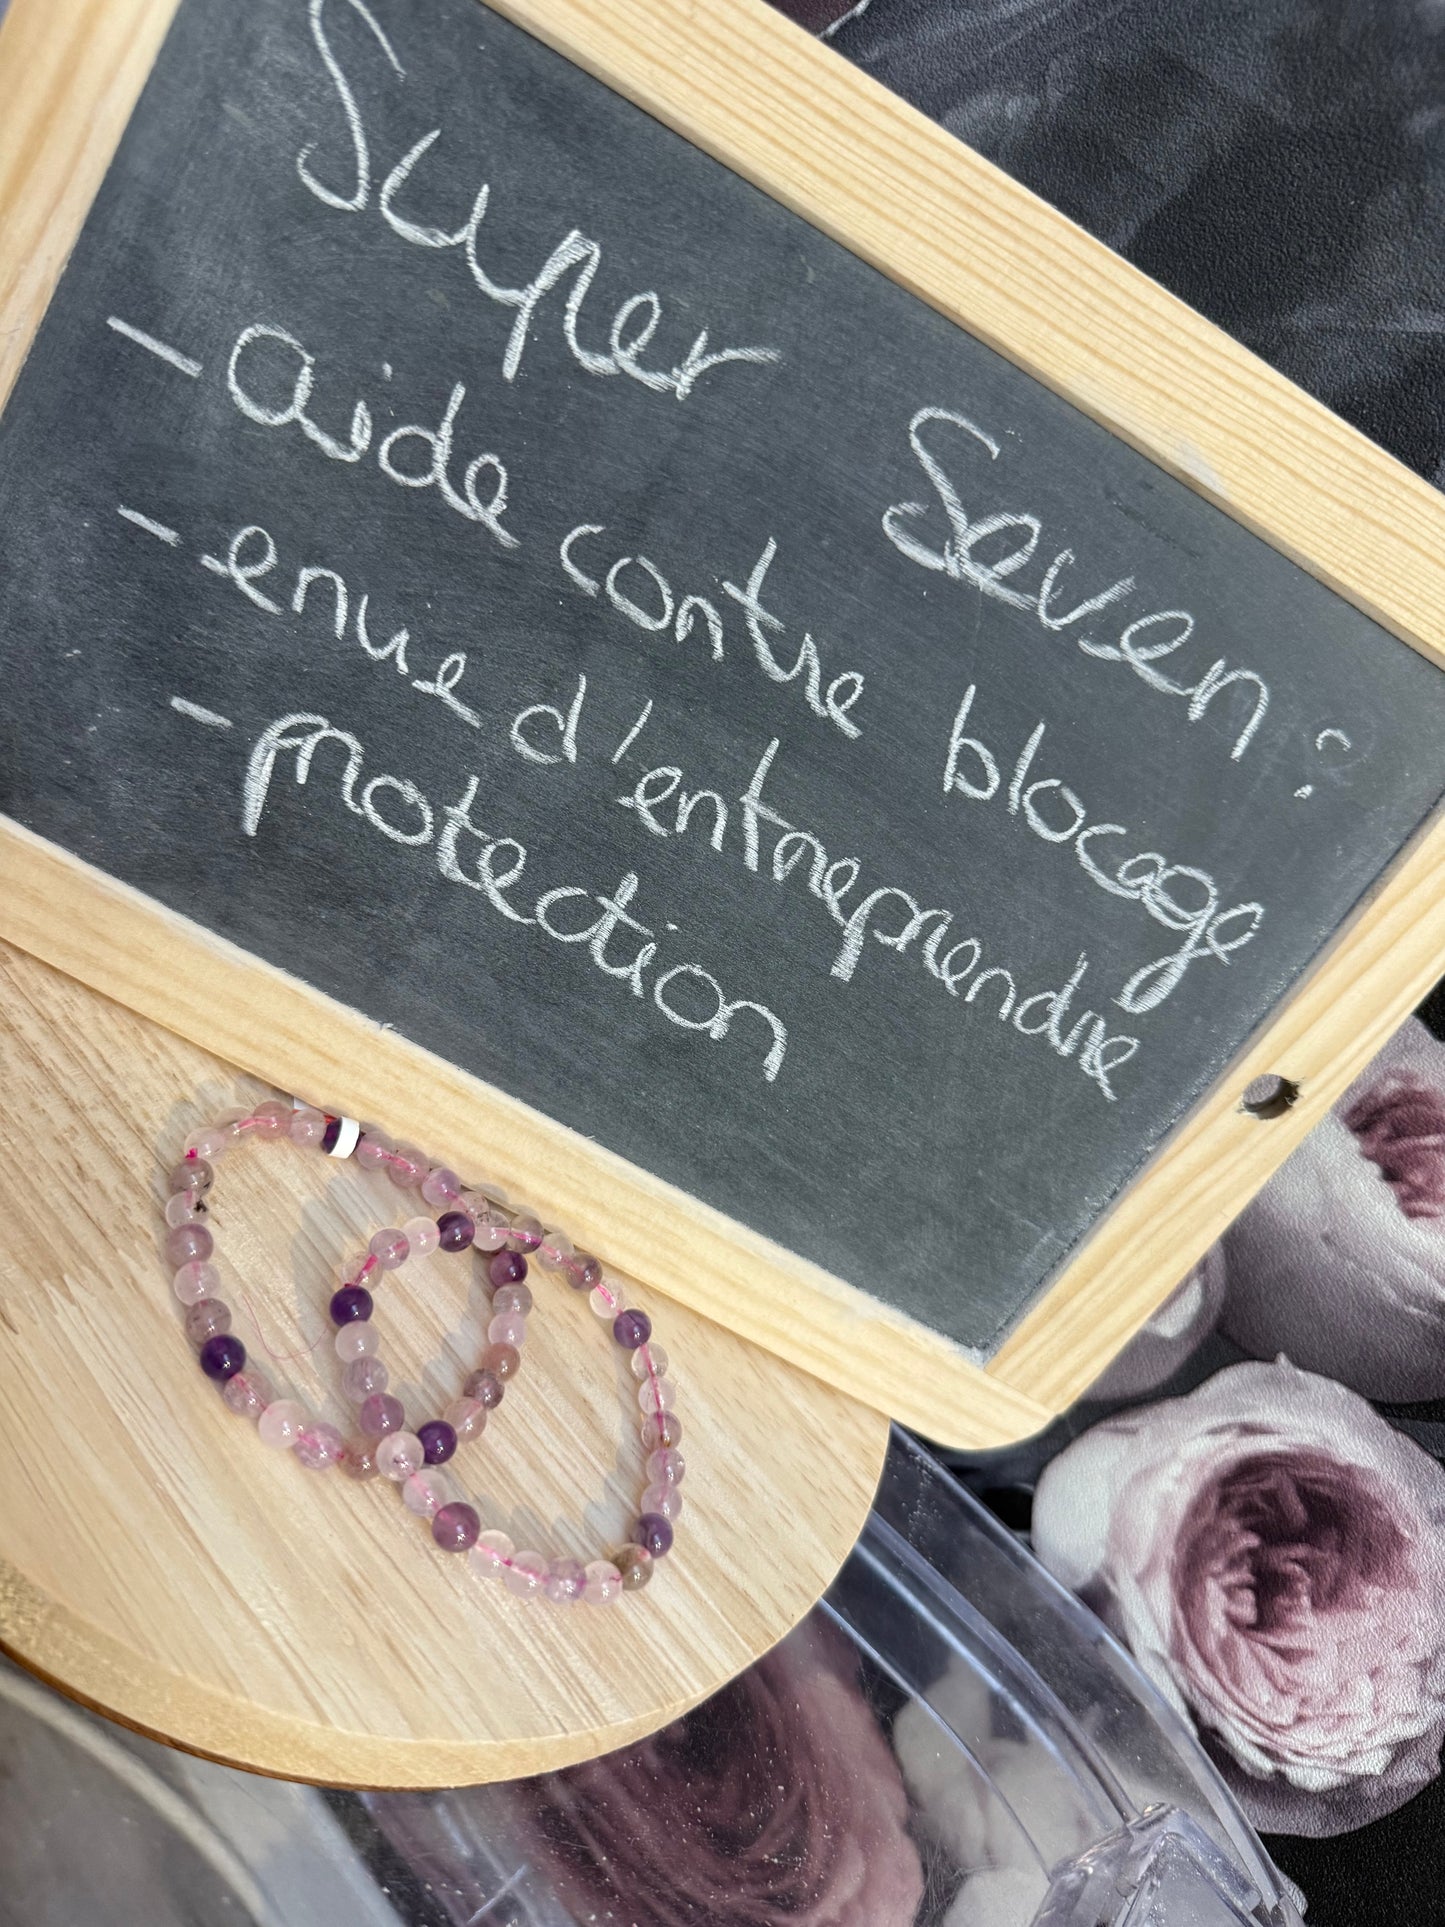 Super Seven :
- aide contre blocage
- envie d'entreprendre
- protection